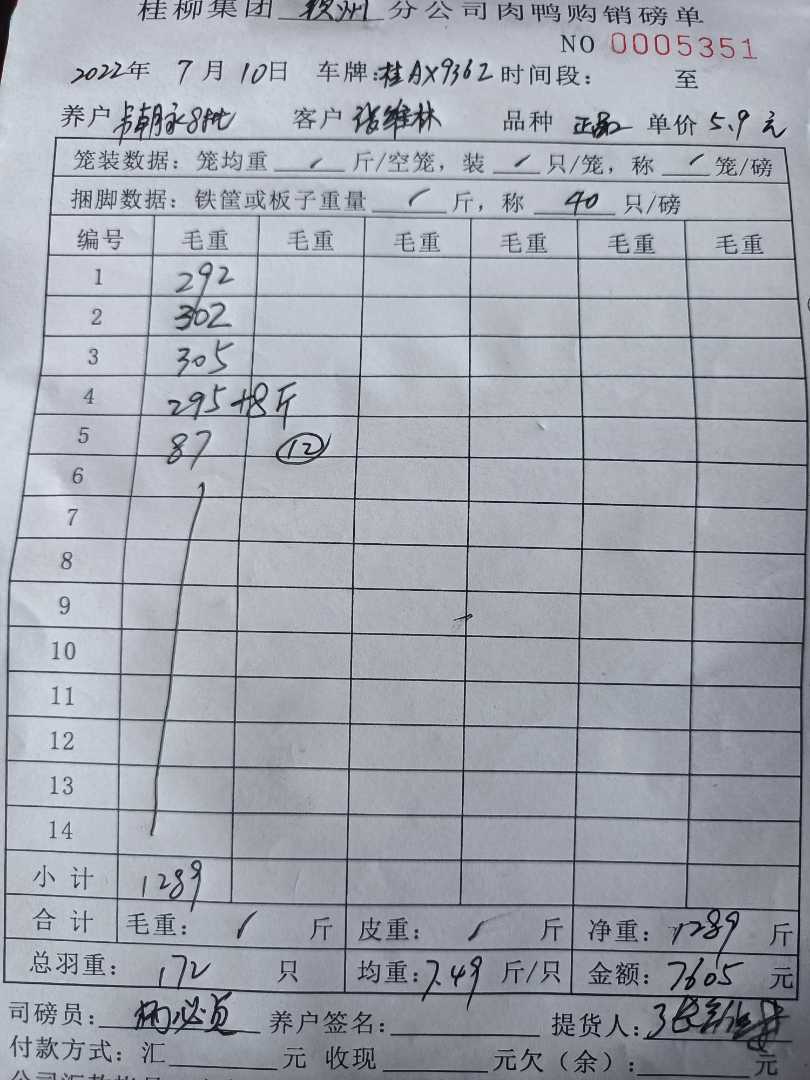 桂柳集团 钦州 分公司肉鸭购销磅单
NO 0005351
2022年 7月10日 车牌:桂AX9362 时间段: 至
养户 朝永8批 客户 张维林 品种 正品 单价 5.9 元
笼装数据: 笼均重 / 斤/空笼, 装 / 只/笼, 称 / 笼/磅
捆脚数据: 铁筐或板子重量 / 斤, 称 40 只/磅
编号 毛重 毛重 毛重 毛重 毛重 毛重
1 292
2 302
3 305
4 295+8斤
5 87 12
6
7
8
9
10
11
12
13
14
小计 1289
合计 毛重: / 斤 皮重: / 斤 净重: 1289 斤
总羽重: 172 只 均重: 7.49 斤/只 金额: 7605 元
司磅员: 养户签名: 提货人:
付款方式: 汇 元 收现 元欠(余): 元